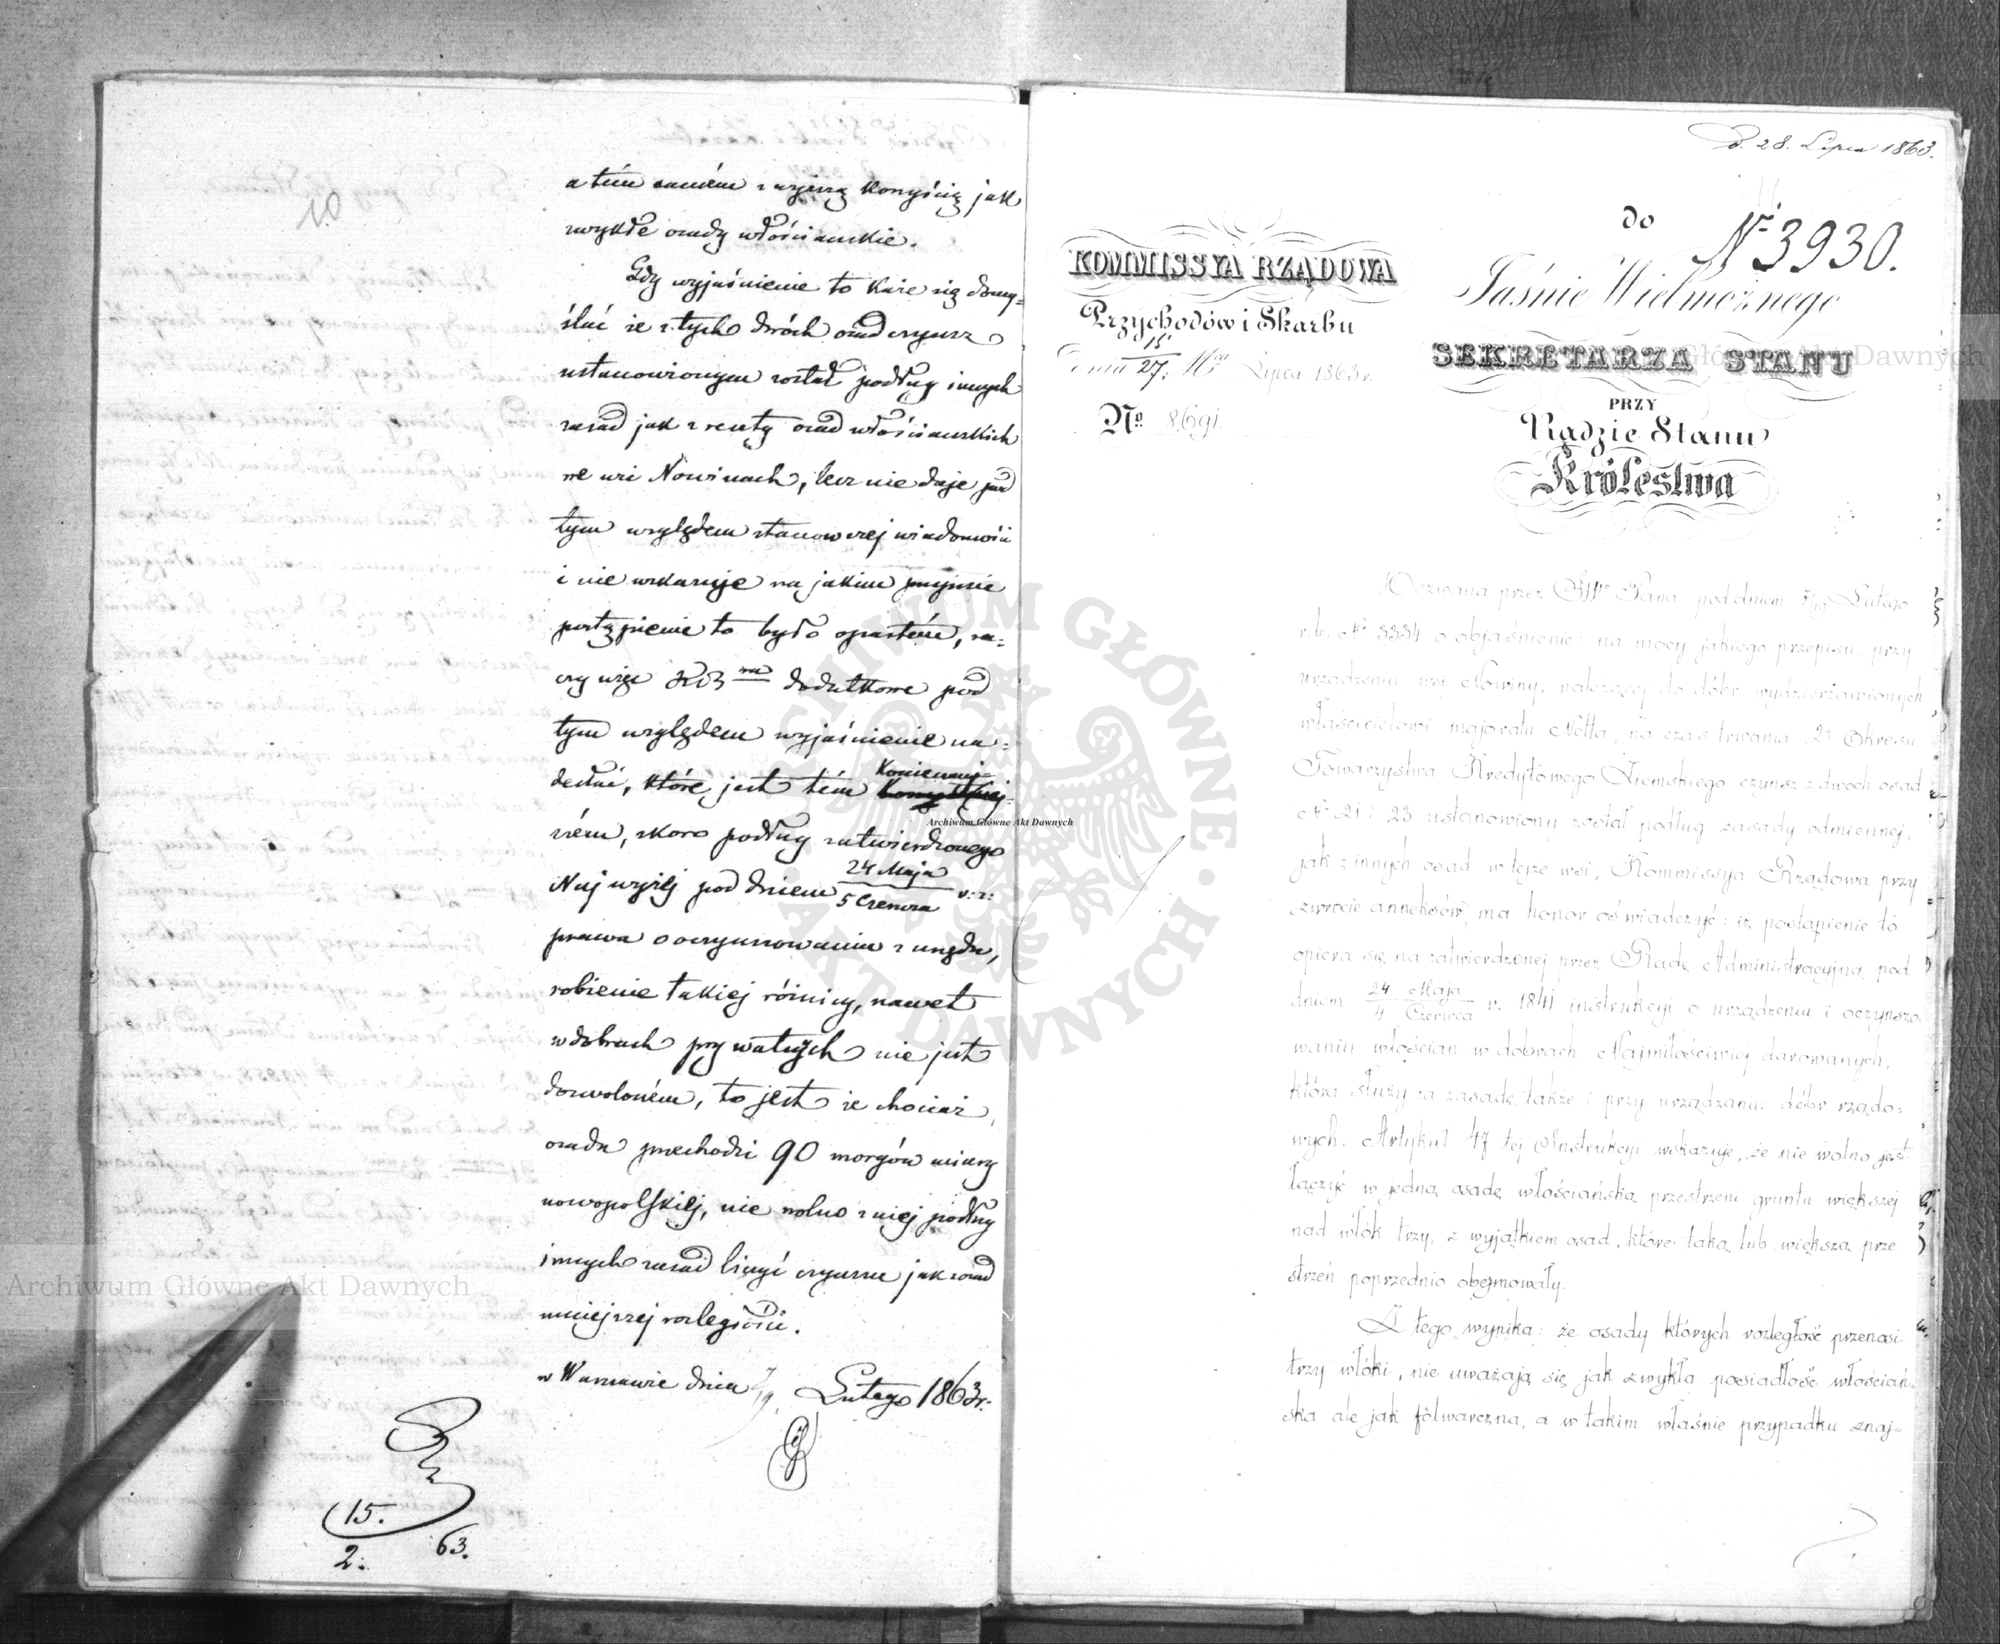 10
a tém samém z wyższą korzyścią jak
zwykłe osady włościańskie.
Gdy wyjaśnienie to każe się domy-
ślać że z tych dwóch osad czynsz
ustanowionym został podług innych
zasad jak z reszty osad włościańskich
we wsi Nowinach, lecz nie daje pod
tym względem stanowczej wiadomości
i nie wskazuje na jakim przepisie
postąpienie to było opartém, ra-
czy więc dodatkowe pod
tym względem wyjaśnienie na-
desłać, które jest tém koniecznij-
szém, skoro podług zatwierdzonego
Najwyżej pod dniem 24 Maja / 5 Czerwca r: z:
prawa o oczynszowaniu z urzędu,
robienie takiej różnicy, nawet
w dobrach prywatnych nie jest
dozwoloném, to jest że chociaż
osada przechodzi 90 morgów miary
nowopolskiej, nie wolno z niej podług
innych zasad liczyć czynszu jak z osad
mniejszej rozległości.
w Warszawie dnia 7/19 Lutego 1863 r.
15.
2. 63.
D. 28. Lipca 1863.
do
№ 3930.
KOMMISSYA RZĄDOWA
Przychodów i Skarbu
dnia 15/27 Mca Lipca 1863 r.
No 8,691
Jaśnie Wielmożnego
SEKRETARZA STANU
PRZY
Radzie Stanu
Królestwa
Wezwana przez JW° Pana pod dniem 7/19 Lutego
r.b. № 3334 o objaśnienie: na mocy jakiego przepisu, przy
urządzeniu wsi Nowiny, należącej do dóbr wydzierżawionych
właścicielowi majoratu Netta, na czas trwania 2° Okresu
Towarzystwa Kredytowego Ziemskiego czynsz z dwóch osad
№ 21 i 23 ustanowiony został podług zasady odmiennej,
jak z innych osad w tejże wsi, Kommissya Rządowa przy
zwrocie anneksów, ma honor oświadczyć: iż postąpienie to
opiera się na zatwierdzonej przez Radę Administracyjną pod
dniem 24 Maja / 4 Czerwca r. 1841 instrukcyi o urządzeniu i oczynszo-
waniu włościan w dobrach Najmiłościwiej darowanych,
która służy za zasadę także i przy urządzaniu dóbr rządo-
wych. Artykuł 47 tej Instrukcyi wskazuje, że nie wolno jest
łączyć w jedną osadę włościańską przestrzeni gruntu większej
nad włók trzy, z wyjątkiem osad, które taką lub większą prze-
strzeń poprzednio obejmowały.
Z tego wynika: że osady których rozległość przenosi
trzy włóki, nie uważają się jak zwykła posiadłość włościań-
ska ale jak folwarczna, a w takim właśnie przypadku znaj-
Archiwum Główne Akt Dawnych
Archiwum Główne Akt Dawnych
Archiwum Główne Akt Dawnych
ARCHIWUM GŁÓWNE AKT DAWNYCH